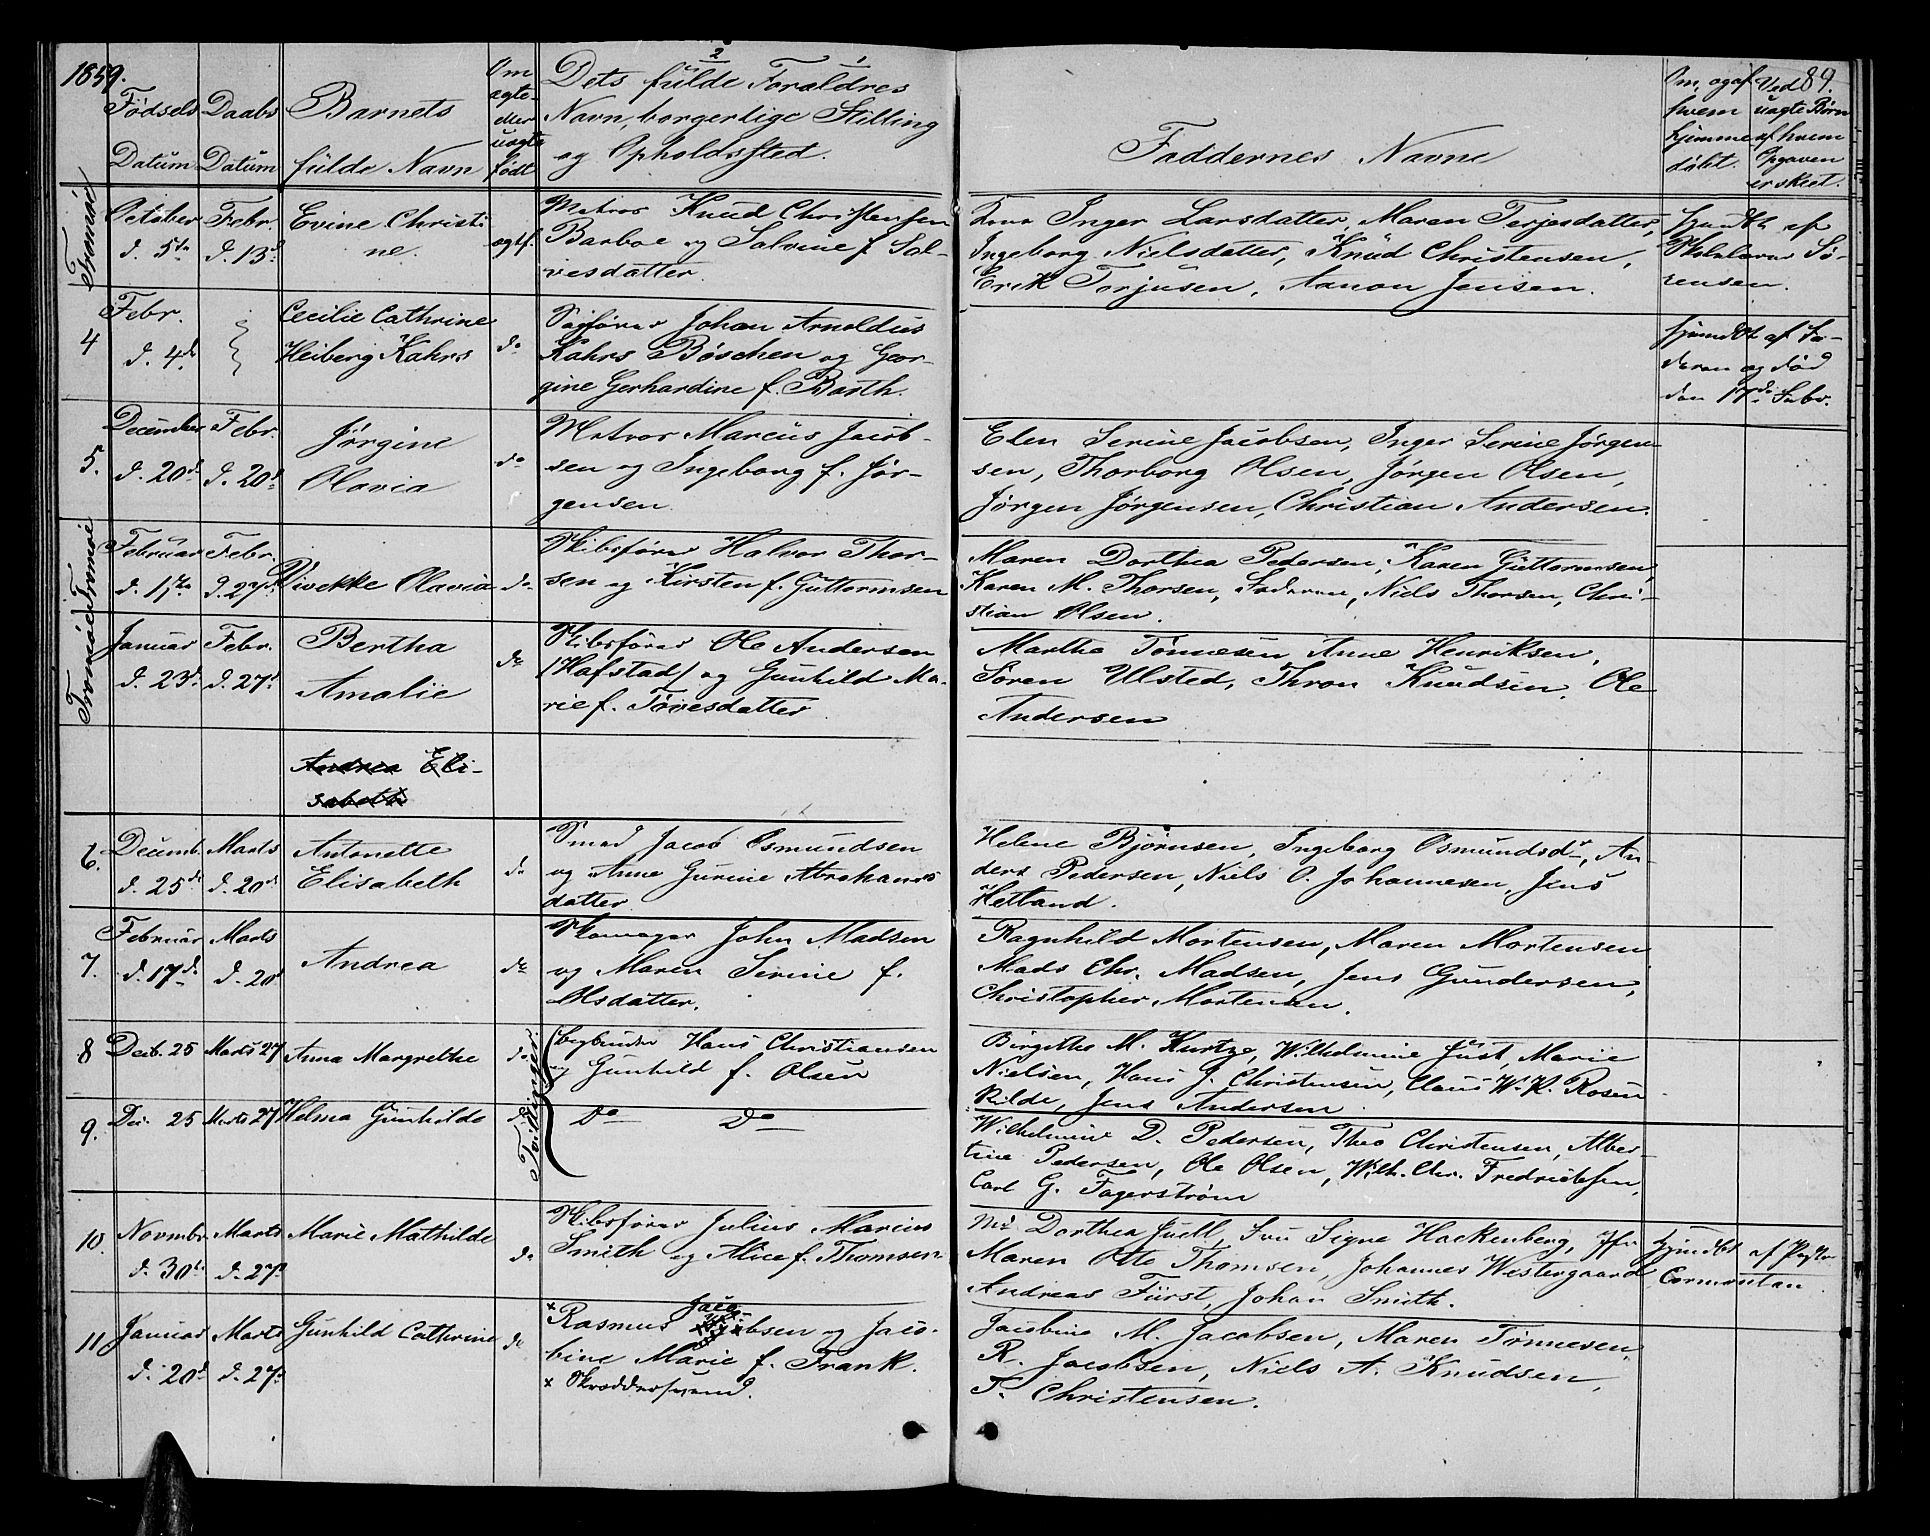 1859.
89.
Fødsels Datum
Daabs Datum
Barnets fulde Navn
Om ægte eller uægte født
Dets fulde Forældres
Navn, borgerlige Stilling
og Opholdssted.
Faddernes Navne
Om, og af hvem hjemmedøbt.
Ved uægte Børn af hvem Opgaven er skeet.
Tromøe
October d. 5te
Febr. d. 13d
Evine Christi
ne.
ægtf.
Matros Knud Christensen
Barboe og Salvine f. Sal-
vesdatter
Kone Inger Larsdatter, Maren Terjesdatter,
Ingeborg Nielsdatter, Knud Christensen,
Erik Torjusen, Aanon Jensen.
hjmdbt af
Skolelærer Sø-
rensen.
4
Febr.
d. 4de
Cecilie Cathrine
Heiberg Kahrs
do
Sagfører Johan Arnoldus
Kahrs Bøschen og Geor-
gine Gerhardine f. Barth.
hjmdbt af Fa-
deren og død
den 17de Febr.
5.
December
d. 20d
Febr.
d. 20d
Jørgine
Olavia
do
Matros Marcus Jacob-
sen og Ingeborg f. Jør-
gensen
Elen Serine Jacobsen, Inger Serine Jørgen-
sen, Thorborg Olsen, Jørgen Olsen,
Jørgen Jørgensen, Christian Andersen.
Tromøe
Februar
d. 1ste
Febr.
d. 27d
Vivekke Olavia
do
Skibsfører Halvor Thor-
sen og Kirsten f. Guttormsen
Maren Dorthea Pedersen, Karen Guttormsen,
Karen M. Thorsen, Faderen, Niels Thorsen, Chri-
stian Olsen.
Tromøe
Januar
d. 23d
Febr.
d. 27d
Bertha
Amalie
do
Skibsfører Ole Andersen
/Hafstad/ og Gunhild Ma-
rie f. Tøvesdatter
Martha Tønnesen Anne Henriksen,
Søren Ulsted, Thron Knudsen, Ole
Andersen
Andrea Eli-
sabeth
6.
Decemb.
d. 25de
Marts
d. 20de
Antonette
Elisabeth
do
Smed Jacob Osmundsen
og Anne Gurine Abrahams
datter
Helene Bjørnsen, Ingeborg Osmundsdr, An-
ders Pedersen, Niels O. Johannesen, Jens
Hetland.
7.
Februar
d. 17de
Marts
d. 20
Andrea
do
Skomager John Madsen
og Maren Serine f.
Olsdatter.
Ragnhild Mortensen, Maren Mortensen
Mads Chr. Madsen, Jens Gundersen,
Christopher Mortensen.
8
Decb. 25
Marts 27
Anna Margrethe
do
Tvillinger
Bogbinder Hans Christiansen
og Gunhild f. Olsen
Birgitte M. Kurtze, Wilhelmine Just, Marie
Nielsen, Hans J. Christensen, Claus W. K. Rosen
kilde, Jens Andersen
9.
Dec. 25
Marts 27
Helma Gunhilde
do
Do Do
Wilhelmine D. Pedersen, Theo Christensen, Alber-
tine Pedersen, Ole Olsen, Wilh. Chr. Fredriksen,
Carl G. Fagerstrøm
10.
Novmbr
d. 30te
Marts
d. 27d
Marie Mathilde
do
Skibsfører Julius Marius
Smith og Alice f. Thomsen
Md Dorthea Juell, Fru Signe Hackenberg, Jfr
Maren Otte Thomsen, Johannes Westergaard,
Andreas Fürst, Johan Smith.
hjmdbt af Pastor
Cormontan
11
Januar
d. 20d
Marts
d. 27d
Gunhild Cathrine
do
x Rasmus Jacobsen og Jaco-
bine Marie f. Frank.
x Skræddersvend.
Jacobine M. Jacobsen, Maren Tønnesen,
R. Jacobsen, Niels A. Knudsen,
T. Christensen.